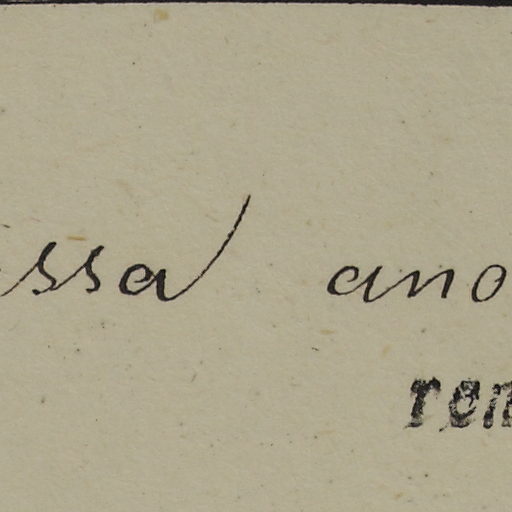 ssa ano
ren